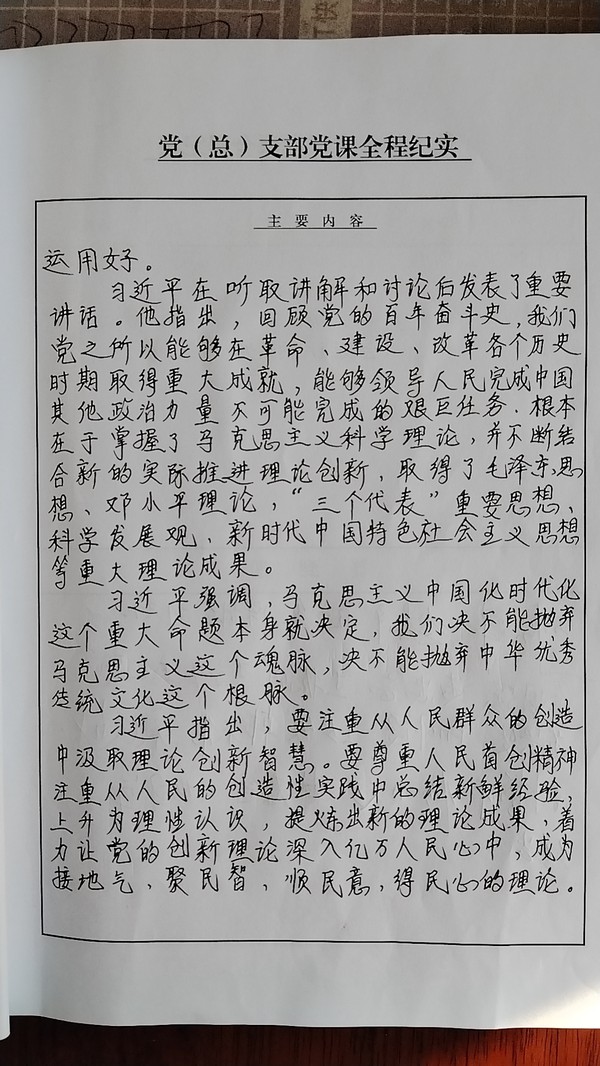 党（总）支部党课全程纪实
主 要 内 容
运用好。
习近平在听取讲解和讨论后发表了重要
讲话。他指出，回顾党的百年奋斗史，我们
党之所以能够在革命、建设、改革各个历史
时期取得重大成就，能够领导人民完成中国
其他政治力量不可能完成的艰巨任务．根本
在于掌握了马克思主义科学理论，并不断结
合新的实际推进理论创新，取得了毛泽东思
想、邓小平理论，“三个代表”重要思想、
科学发展观、新时代中国特色社会主义思想
等重大理论成果。
习近平强调，马克思主义中国化时代化
这个重大命题本身就决定，我们决不能抛弃
马克思主义这个魂脉，决不能抛弃中华优秀
传统文化这个根脉。
习近平指出，要注重从人民群众的创造
中汲取理论创新智慧。要尊重人民首创精神
注重从人民的创造性实践中总结新鲜经验，
上升为理性认识，提炼出新的理论成果，着
力让党的创新理论深入亿万人民心中，成为
接地气，聚民智，顺民意，得民心的理论。